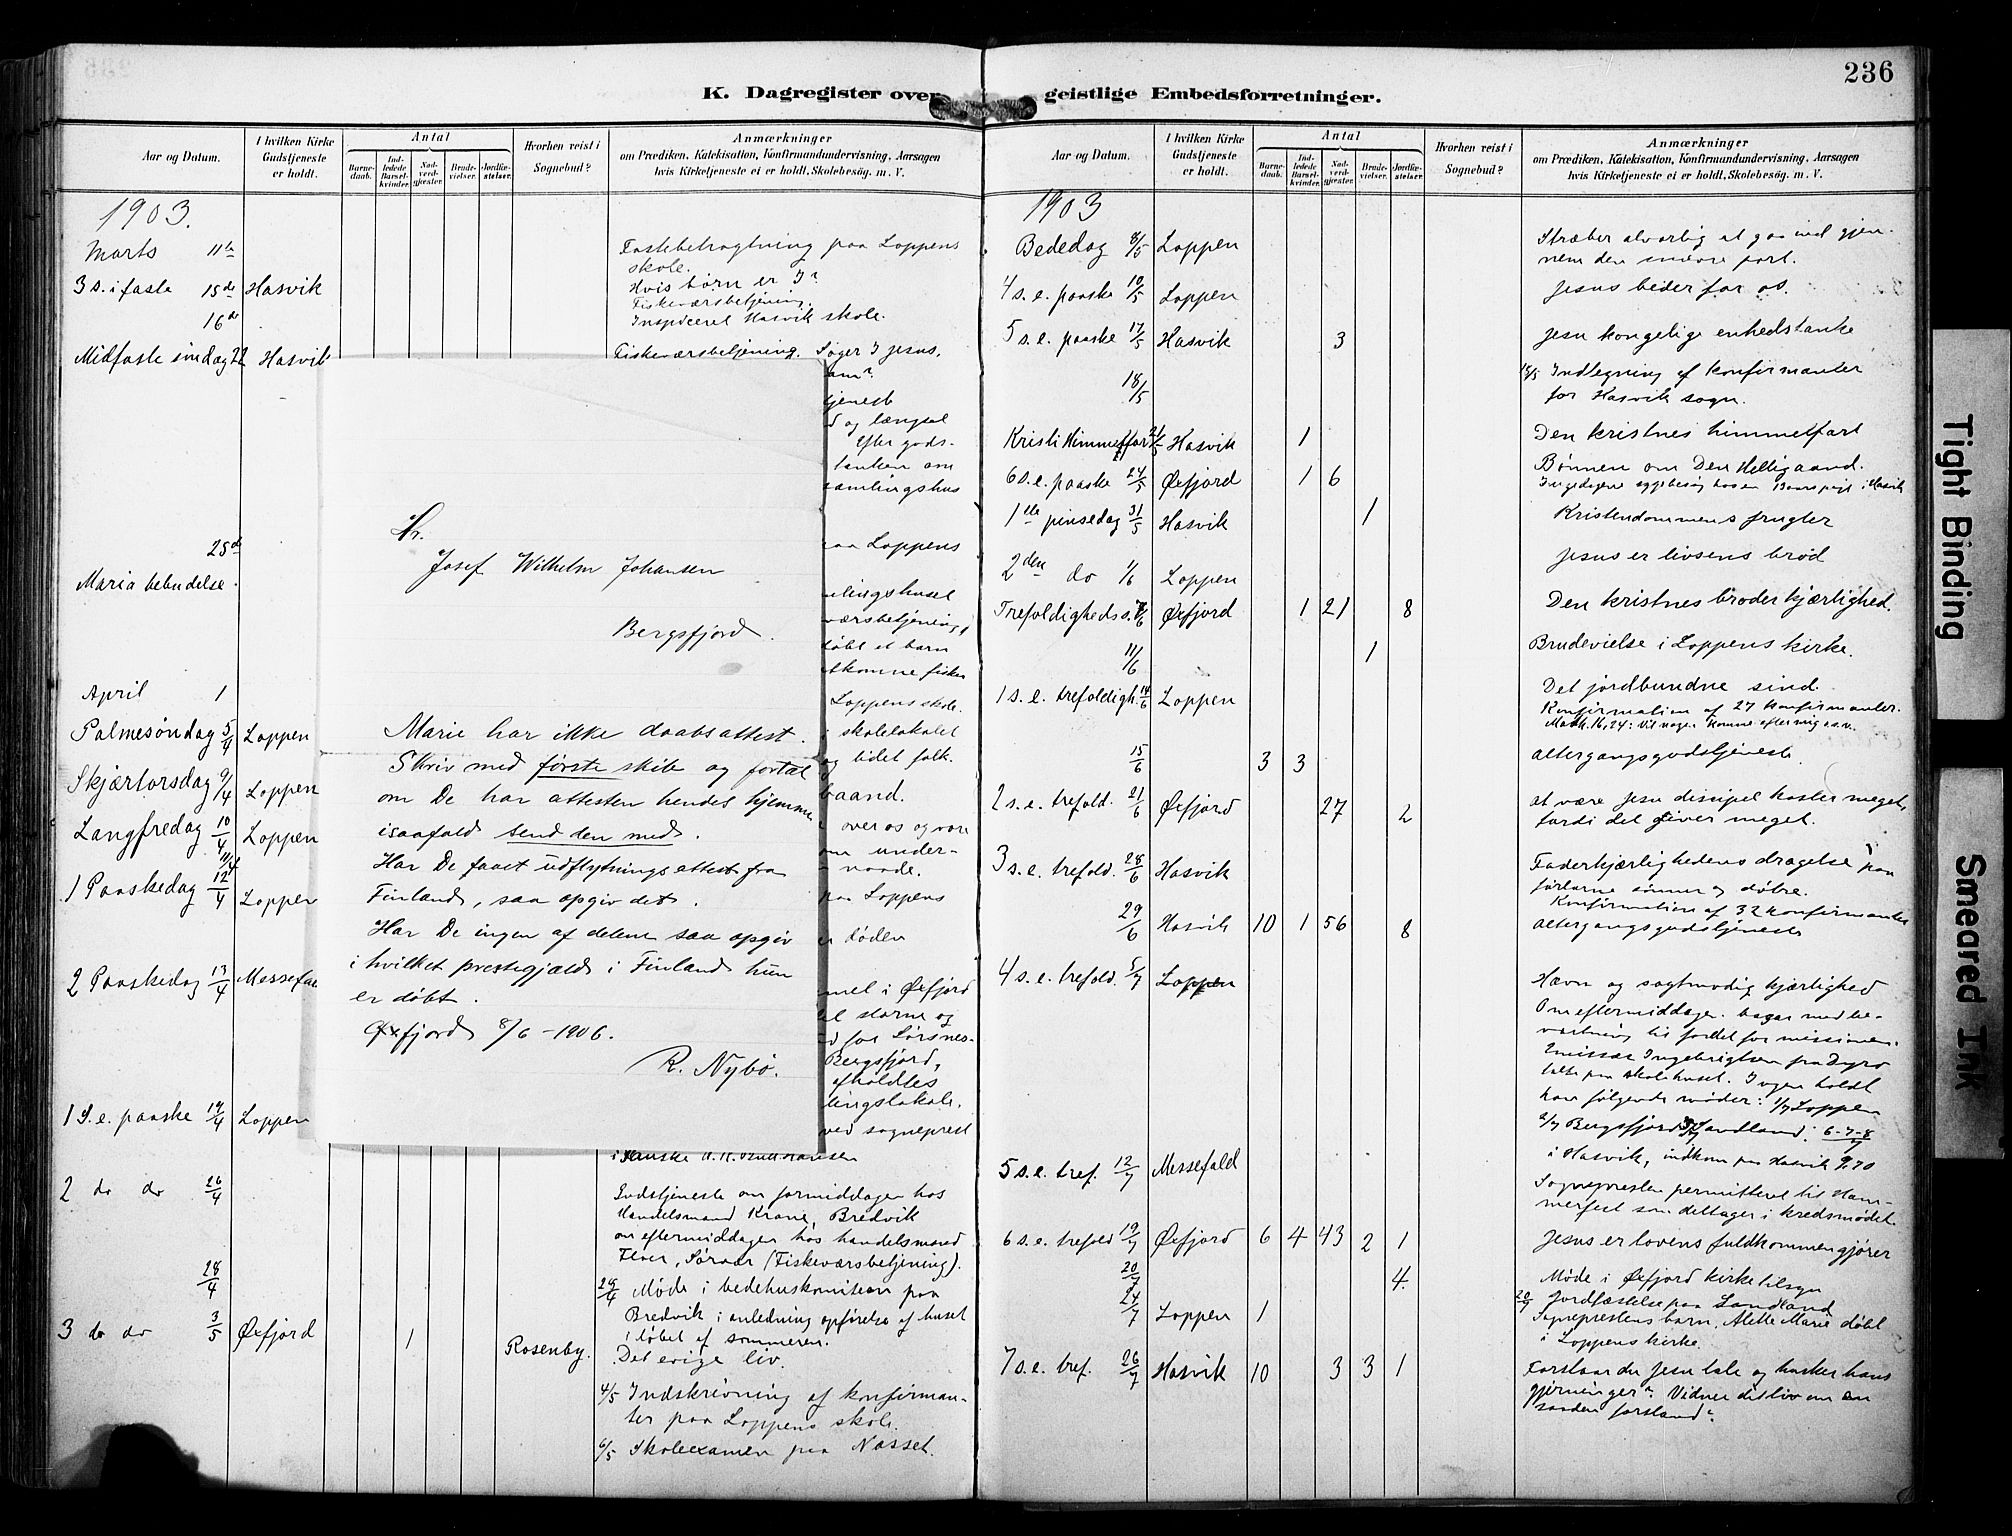 236
K. Dagregister over geistlige Embedsforretninger.
Aar og Datum.
I hvilken Kirke Gudstjeneste er holdt.
Antal
Barnedaab.
Indledede Barselkvinder.
Nadverdgjester.
Brudevielser.
Jordfæstelser.
Hvorhen reist i Sognebud?
Anmærkninger
om Prædiken, Katekisation, Konfirmandundervisning, Aarsagen
hvis Kirketjeneste ei er holdt, Skolebesøg. m. V.
1903.
Marts 11te Fastebetragtning paa Loppens
skole.
3 s. i faste 15de Hasvik Hvis børn er I?
Fiskeværsbetjening.
16de Inspiceret Hasvik skole.
Midfaste søndag 22 Hasvik Fiskeværsbetjening. Søger I Jesus,
tjeneste
og længsel
Efter guds-
tanken om
samlingshus
25de paa Loppens
Maria bebudelse.
lingshuset
værsbetjening,
døbt et barn
tkomne fisker
April 1 Loppens skole.
Palmesøndag 5/4 Loppen i skolelokalet
Skjærtorsdag 9/4 Loppen og lidet folk.
baand.
Langfredag 10/4 Loppen over os og vore
under-
naade.
11/4
1 Paaskedag 12/4 Loppen paa Loppens
døden
2 Paaskedag 13/4 Messefa mel i Øxfjord
storm og
for Sørsnes-
Bergsfjord,
afholdtes
lingslokale.
1 S. e. paaske 19/4 Loppen ved sogneprest
2 do do 26/4 Gudstjeneste om formiddagen hos
Handelsmand Krane, Bredvik
om eftermiddagen hos handelsmand
Sørvær (Fiskeværsbetjening).
28/4 28/4 Møde i bedehuskomiteen paa
Bredvik i anledning opførelse af huset
i løbet af sommeren.
3 do do 3/5 Øxfjord 1 Rosenby. Det evige liv.
4/5 Indskrivning af konfirman-
ter paa Loppens skole.
6/5 Skoleexamen paa Næsset.
Hr.
Josef Wilhelm Johansen
Bergsfjord.
Marie har ikke daabsattest.
Skriv med første skib og fortæl
om De har attesten hendes hjemme
isaafald send den med.
Har De faaet udflytningsattest fra
Finland, saa opgiv det.
Har De ingen af delene saa opgiv
i hvilket prestegjæld i Finland hun
er døbt.
Øxfjord 8/6 - 1906.
R. Nybø.
Aar og Datum.
I hvilken Kirke Gudstjeneste er holdt.
Antal
Barnedaab.
Indledede Barselkvinder.
Nadverdgjester.
Brudevielser.
Jordfæstelser.
Hvorhen reist i Sognebud?
Anmærkninger
om Prædiken, Katekisation, Konfirmandundervisning, Aarsagen
hvis Kirketjeneste ei er holdt, Skolebesøg. m. V.
1903
Bededag 8/5 Loppen Stræber alvorlig at gaa ind gjen-
nem den snævre port.
4 s. e. paaske 10/5 Loppen Jesus beder for os.
5 s. e. paaske 17/5 Hasvik 3 Jesu kongelige enhedstanke
18/5 18/5 Indtegning af konfirmanter
for Hasvik sogn.
Kristi Himmelfart 21/5 Hasvik 1 Den kristnes himmelfart
6 s. e. paaske 24/5 Øxfjord 1 6 Bønnen om Den Hellig aand.
1ste pinsedag 31/5 Hasvik 1 Kristendommens frugter
2den do 1/6 Loppen Jesus er livsens brød
Trefoldigheds s. 7/6 Øxfjord 1 21 8 Den kristnes broderkjærlighed.
11/6 1 Brudevielse i Loppens kirke.
1 s. e. trefoldigh. 14/6 Loppen Det jordbundne sind.
Konfirmation af 27 konfirmanter.
Math. 16,24: Vil nogen komme efter mig o.s.v.
15/6 3 3 altergangsgudstjeneste.
2 s. e. trefold. 21/6 Øxfjord 27 2 At være Jesu discipel koster meget,
fordi det giver meget.
3 s. e. trefold. 28/6 Hasvik Faderkjærlighedens dragelse paa
fortabte sønner og døtre.
Konfirmation af 32 konfirmanter
29/6 Hasvik 10 1 56 8 altergangsgudstjeneste
4 s. e. trefold. 5/7 Loppen Hævn og sagtmodig kjærlighed
Om eftermiddagen basar med be-
værtning til fordel for missionen.
Emissær Ingebrigtsen fra Dyrø
talte paa skolehuset. I ugen holdt
han følgende møder: 1/7 Loppen
2/7 Bergsfjord Sandland, 6-7-8/7
i Hasvik, indkom paa Hasvik 9.70
5 s. e. tref. 12/7 Messefald Sognepresten permitteret til Ham-
merfest som deltager i kredsmødet.
6 s. e. trefold 19/7 Øxfjord 6 4 43 2 1 Jesus er lovens fuldkommengjører
20/7 4. Møde i Øxfjord kirketilsyn
20/7 Jordfæstelse paa Sandland
24/7 Loppen 1 Sogneprestens barn, Alette Marie døbt
i Loppens kirke.
7 s. e. tref. 26/7 Hasvik 10 3 3 1 Forstaar du Jesu tale og husker hans
gjerninger? Vidner dit liv om en
saadan forstand?
Tight Binding
Smeared Ink